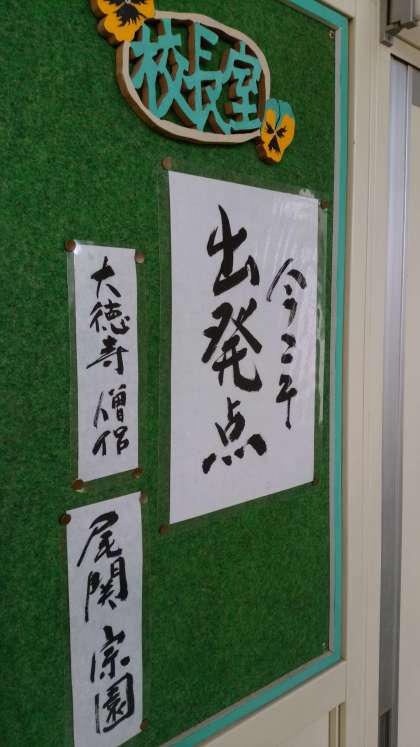 校長室
今こそ
出発点
大徳寺 僧侶
尾関 宗園